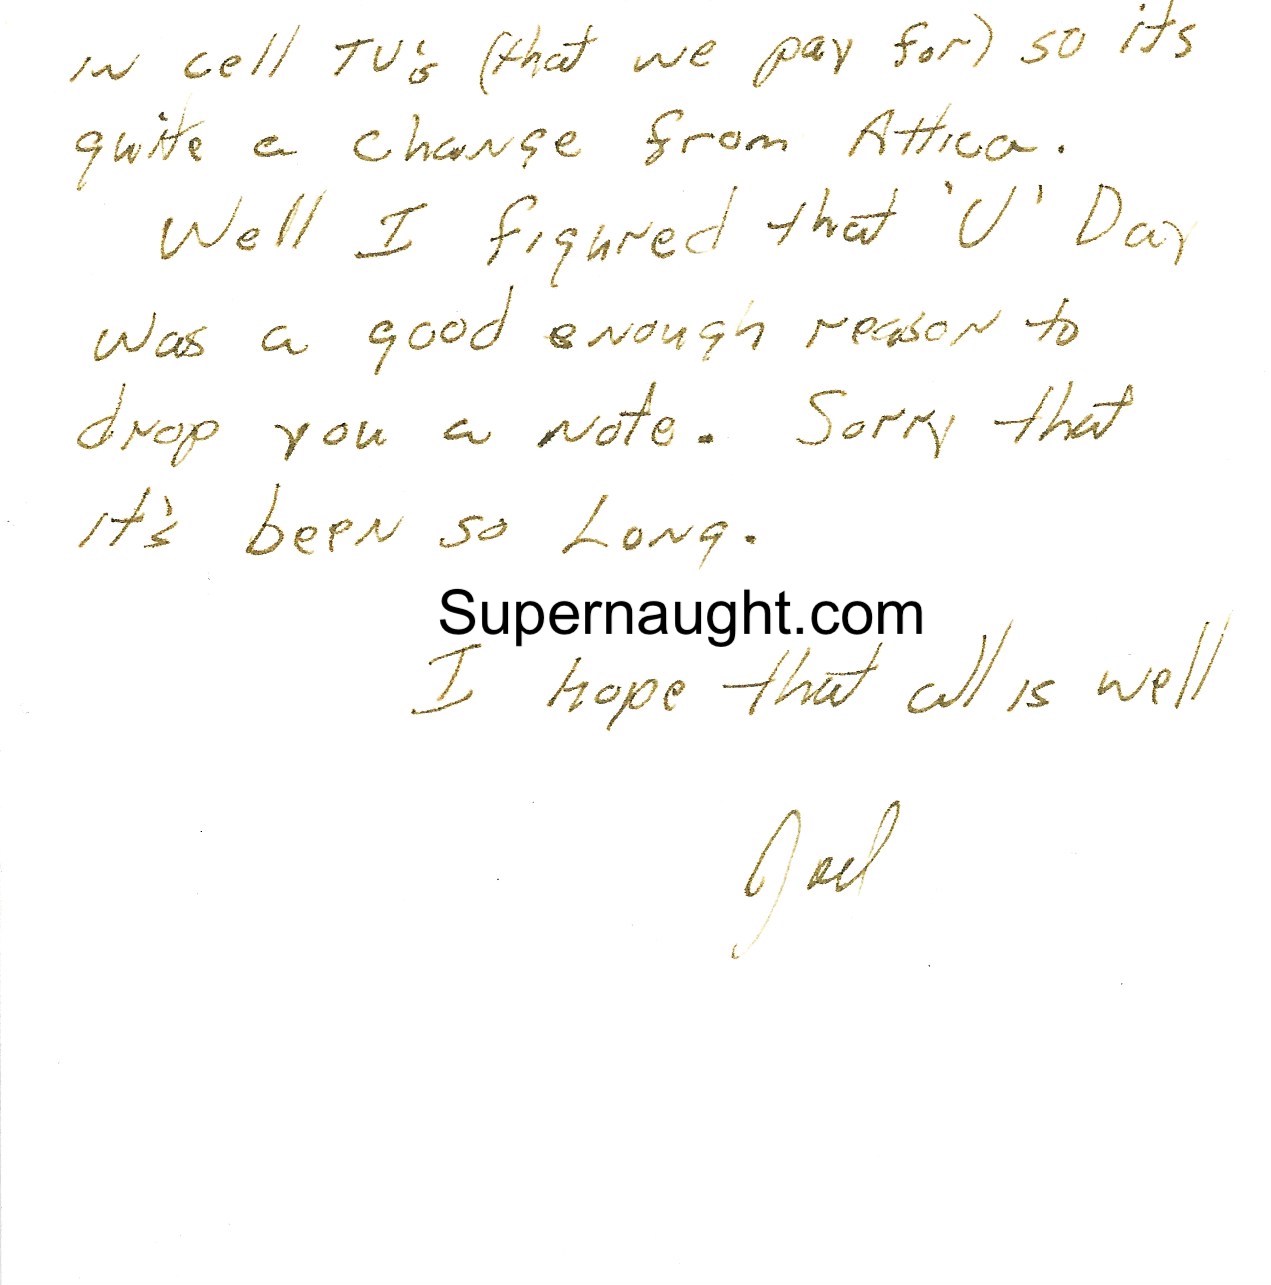 in cell TV's (that we pay for) so its
quite a change from Attica.
Well I figured that 'V' Day
was a good enough reason to
drop you a note. Sorry that
it's been so Long.
Supernaught.com
I hope that all is well
Joel